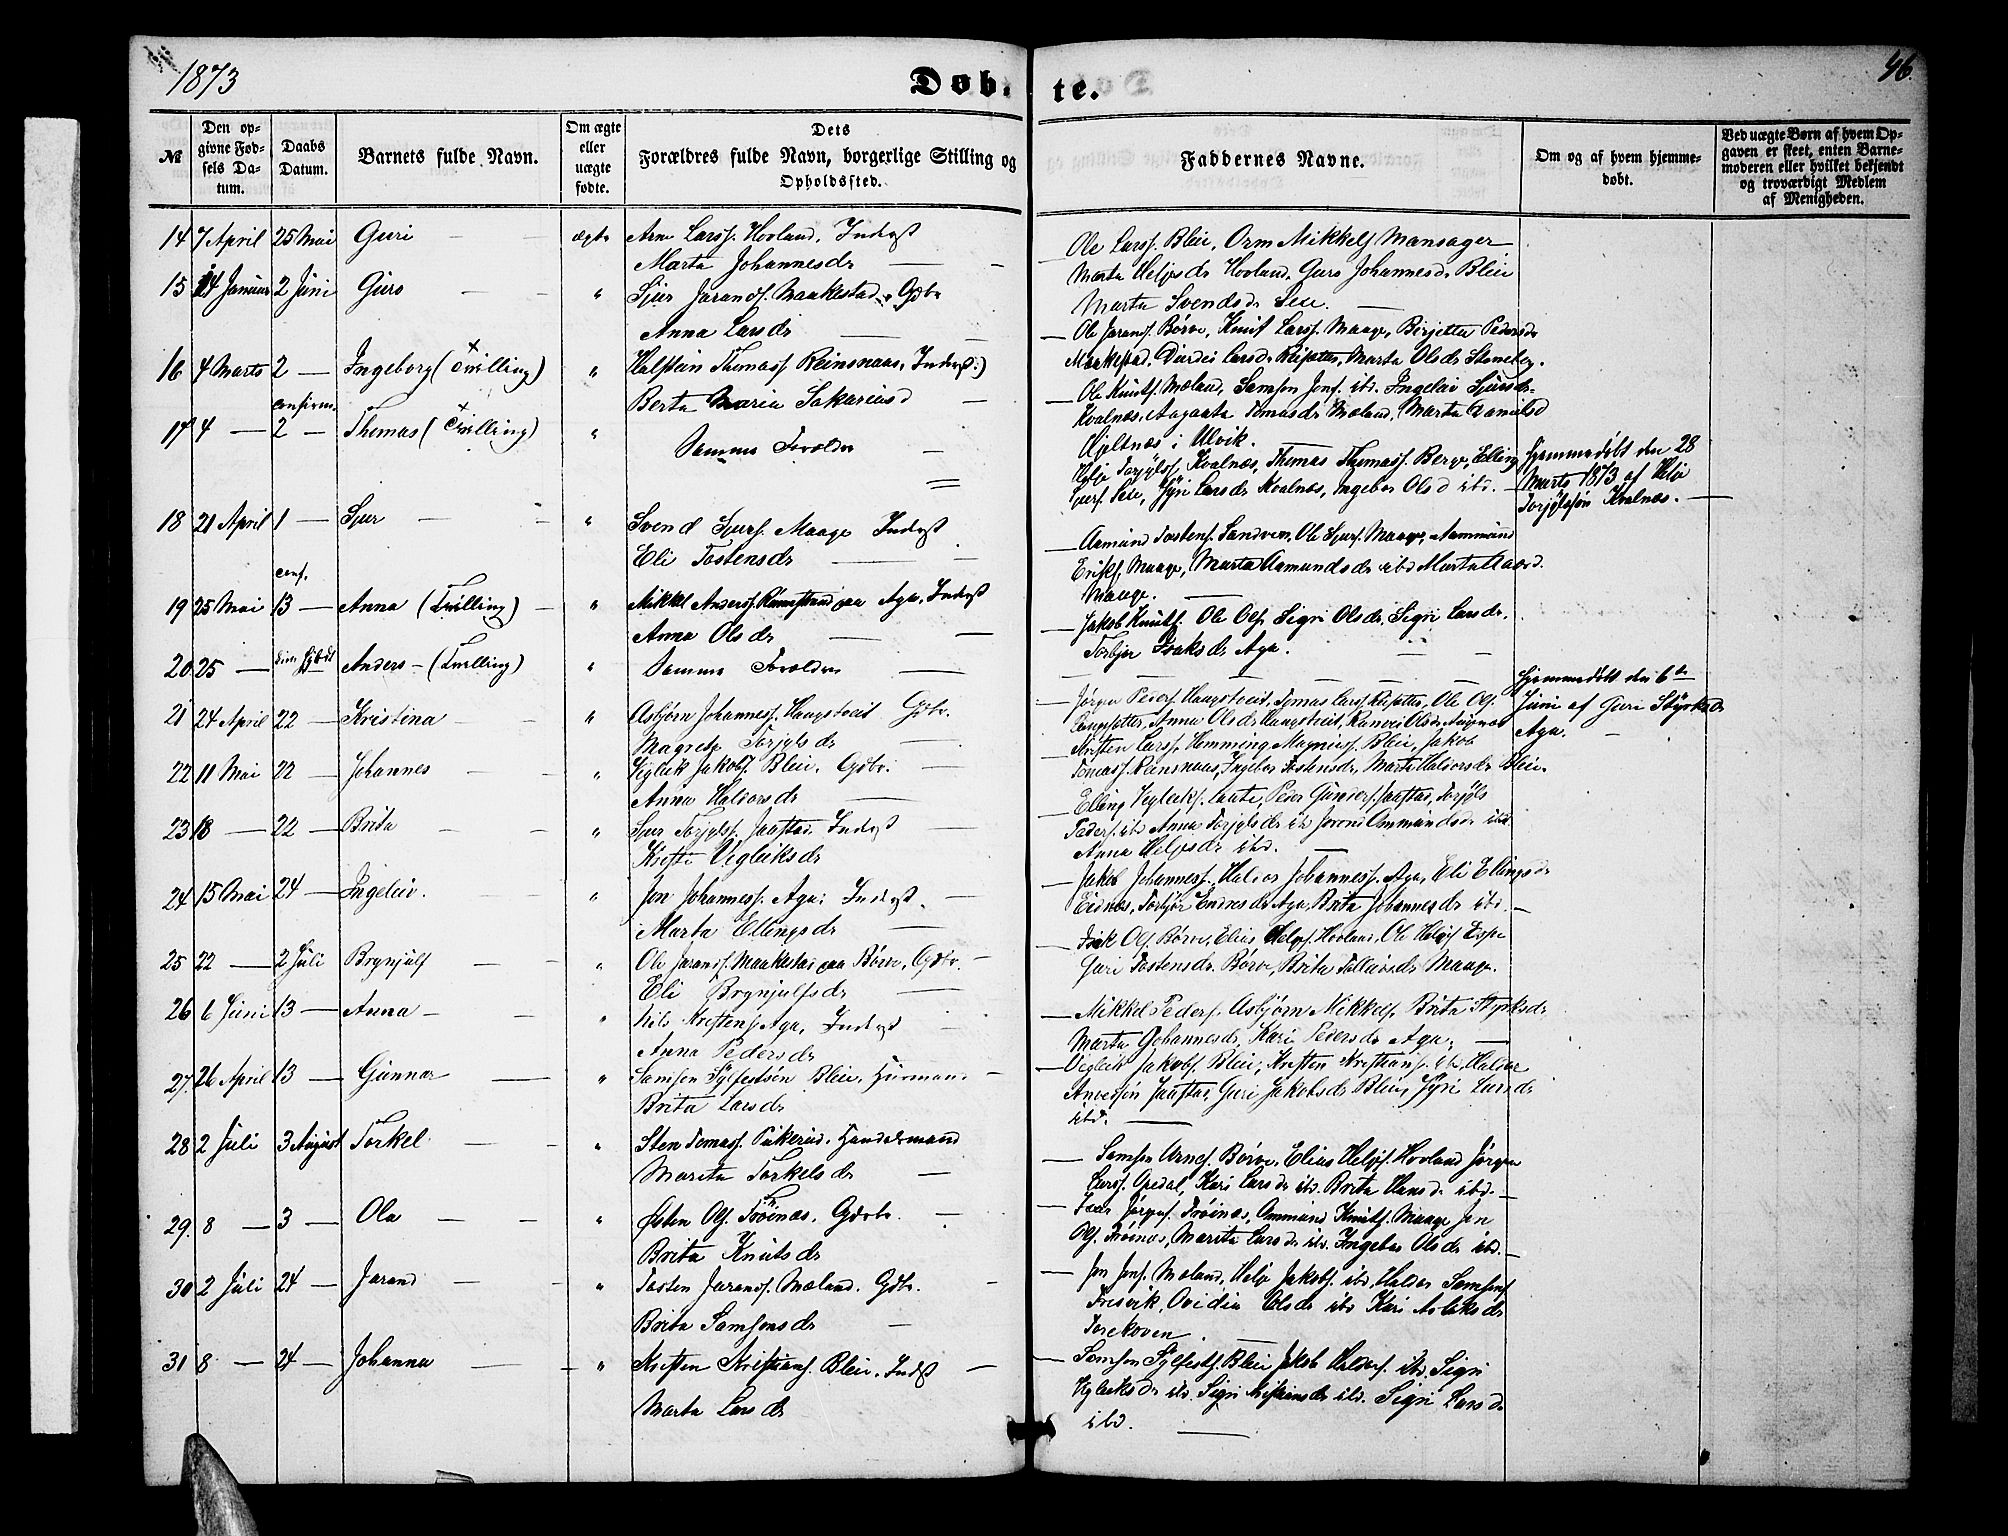 1873
Døbte.
46.
№
Den opgivne Fødsels Datum.
Daabs Datum.
Barnets fulde Navn.
Om ægte eller uægte fødte.
Dets Forældres fulde Navn, borgerlige Stilling og Opholdssted.
Faddernes Navne.
Om og af hvem hjemmedøbt.
Ved uægte Børn af hvem Opgaven er skeet, enten Barnemoderen eller hvilket bekjendt og troværdigt Medlem af Menigheden.
14 7 April 25 Mai Guri — ægte Arne Larss. Hovland, Inderst
Marta Johannesdr —
Ole Larss. Bleie, Orm Mikkels Mansager
Marta Heljesdr Hovland, Guro Johannesdr Bleie
Marta Svendsdr Seie. —
15 14 Januar 2 Juni Guro — " Sjur Jarands. Maakestad, Gdbr
Anna Larsdr —
— Ole Jarands. Børve, Knut Larss. Maage, Birjetta Pedersdr
Maakestad, Durdei Larsdr Reisæter, Marta Olsdr Staneberg.
16 4 Marts 2 — Ingeborg (Tvilling) " Halstein Thomass Reinsnaas, Inderst)
Berta Maria Sakariasd —
— Ole Knuts. Mæland, Samson Jons. ibd. Ingeleiv Sjursdr
Kvalnæs, Aagaata Tomasdr Mæland, Marta Danielsd
Hjeltnæs i Ulvik. —
confirm.
17 4 — 2 — Thomas (Tvilling) " Samme Forældre —
Heljo Torjylss. Kvalnæs, Thomas Thomass. Berge, Elling
Sjurs. Seie, Jyri Larsdr Kvalnæs, Ingebor Olsd ibd. —
Hjemmedøbt den 28
Marts 1873 af Heljo
Torjylssøn Kvalnæs. —
18 21 April 1 — Sjur — " Svend Sjurs. Maage Inderst
Eli Tostensdr —
— Aamund Tostens. Sandven, Ole Sjurs. Maage, Aammund
Eriks. Maage, Marta Aamundsdr ibd Marta
Maage. —
conf.
19 25 Mai 13 — Anna (Tvilling) — " Mikkel Anderss. paa Aga, Inderst
Anna Olsdr —
— Jakob Knuts. Ole Ols. Sigri Olsdr, Sigri Larsdr.
Torbjør Isaksdr Aga. —
20 25 — Anders — (Tvilling) " Samme Forældre —
Hjemmedøbt den 6te
Juni af Guri Styrksdr
Aga. —
21 24 April 22 — Kristina — " Asbjørn Johanness. Haugstveit Gdbr.
Magrete Torjylsdr —
— Jørgen Peders. Haugstveit, Tomas Larss Reisæter, Ole Ols.
Anna Olsdr Haugstveit, Ranvei Olsdr
22 11 Mai 22 — Johannes — " Vigleik Jakobs. Bleie. Gdbr. —
Anna Haldorsdr —
Kristen Larss. Hemming Magnuss. Bleie, Jakob
Tomass. Reinsnaas, Ingebor Tostensdr, Marta Haldorsdr Bleie.
23 18 — 22 — Brita — " Sjur Torjylss. Jaastad Inderst —
Kristi Vigleiksdr
— Elling Vigleiks. Peder Gunders. Jaastad, Torjyls
Peders. ibd Anna Torjylsdr ibd Jorond Ommundsdr ibd
Anna Heljesdr ibd. —
24 15 Mai 24 — Ingeleiv. — " Jon Johanness. Aga, Inderst. —
Marta Ellingsdr —
— Jakob Johanness. Haldor Johanness. Aga, Eli Ellingsdr
Eidnæs, Torbjør Endresdr Aga, Brita Johannesdr ibd. —
25 22 — 2 Juli Brynjulf — " Ole Jarands. Maakestad paa Børve, Gdbr. —
Eli Brynjulfsdr —
— Isak Ols. Børve, Elias Heljes. Hovland, Ole Heljes Espe
Guri Tostensdr. Børve, Brita Tollaivsdr Maage.
26 6 Juni 13 — Anna — " Nils Kristens. Aga, Inderst —
Anna Pedersdr
— Mikkel Peders. Asbjørn Mikkels. Brita Styrksdr
Marta Johannesdr, Kari Pedersdr Aga. —
27. 26 April 13 — Gunnar — " Samson Sylfestsøn Bleie, Huusmand —
Brita Larsdr
— Vigleik Jakobs. Bleie, Kristen Kristians. ibd, Haldor
Jaastad, Guri Jakobsdr Bleie, Jyri Larsdr
ibd. —
28 2 Juli 3 August Torkel — " Sten Tomass. Handelsmand
Marita Torkelsdr —
— Samson Arnes. Børve, Elias Heljes. Hovland Jørgen
Larss. Opedal, Kari Larsdr ibd. Brita Hansdr ibd. —
29. 8 — 3 — Ola — " Østen Ols. Trøinæs, Gdbr. —
Brita Knutsdr
— Ivar Jørgens. Trøinæs, Ommund Knuts. Maage Jon
Ols. Trøinæs, Marita Larsdr ibd. Ingebor Olsdr ibd. —
30 2 Juli 24 — Jarand — " Tosten Jarands. Mæland. Gdbr. —
Brita Samsonsdr —
— Jon Jons. Mæland, Heljo Jakobs. ibd, Haldor Samsons.
Tresvik, Ovidia Olsdr ibd Kari Aslaksdr
31 8 — 24 — Johanna — " Kristen Kristians. Bleie, Inderst —
Marta Larsdr
— Samson Sylfests. Bleie Jakob Haldors. ibd. Sigri
Vigleiksdr ibd. Sigri Kristiansdr ibd. Sigri Larsdr
ibd. —